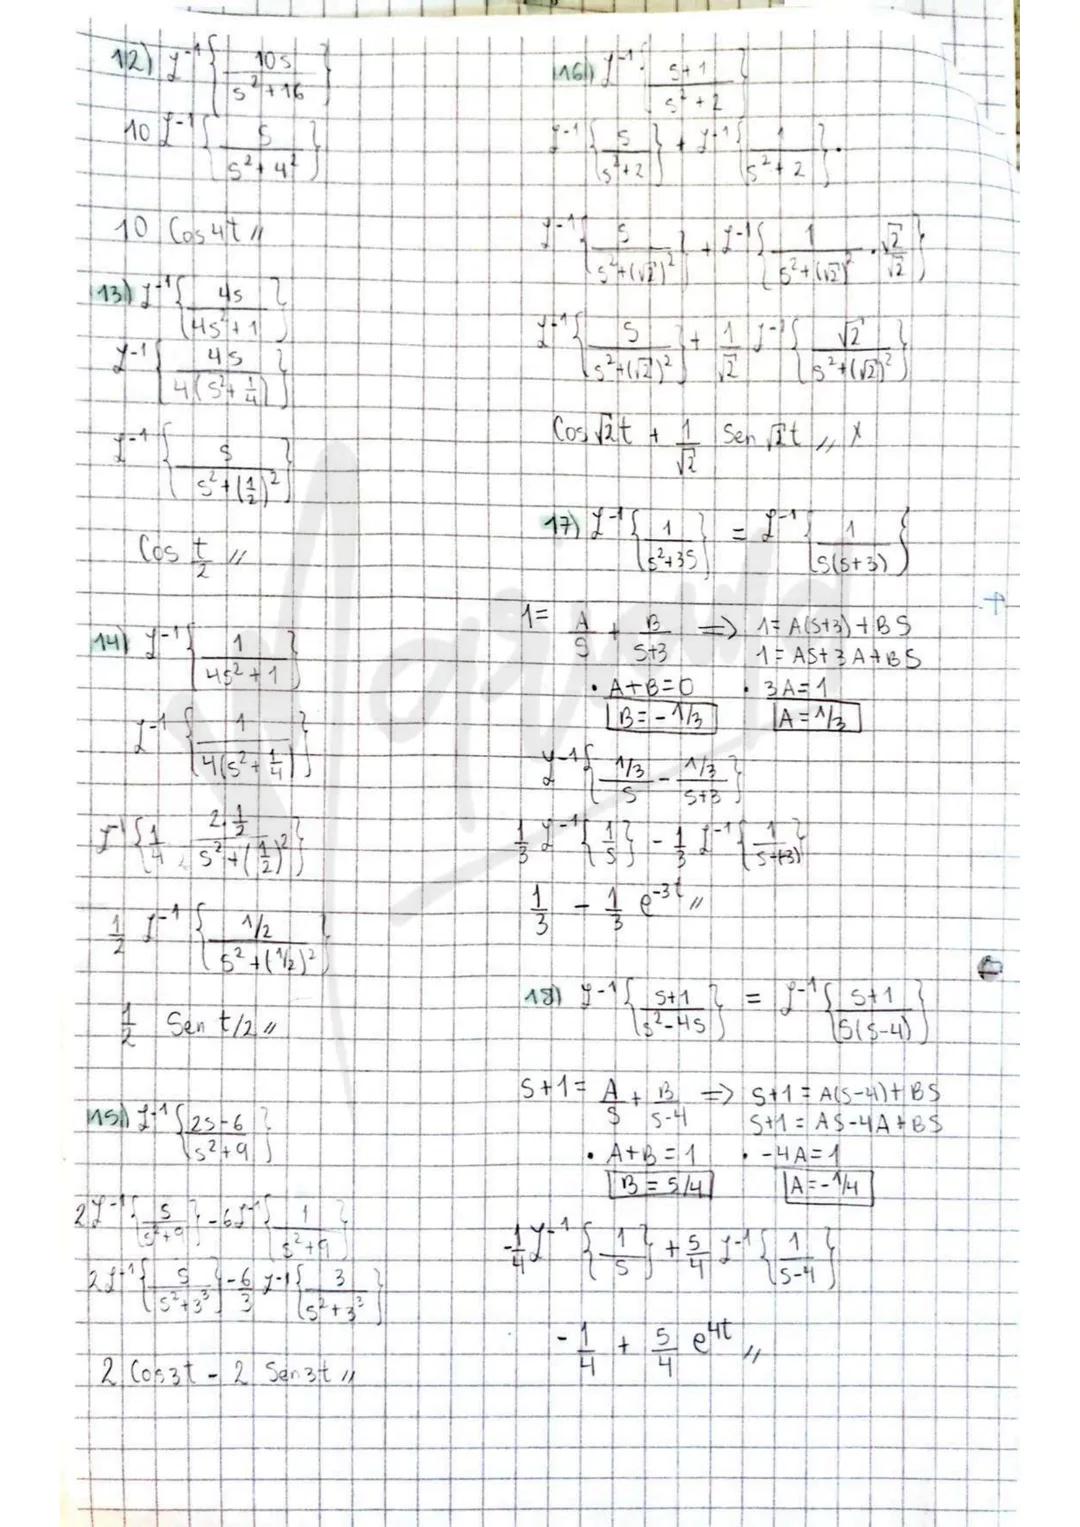 12) ℒ⁻¹{10s/(s²+16)}
10 ℒ⁻¹{s/(s²+4²)}
10 Cos 4t //
13) ℒ⁻¹{4s/(4s²+1)}
ℒ⁻¹{4s/(4(s²+1/4))}
ℒ⁻¹{s/(s²+(1/2)²)}
Cos t/2 //
14) ℒ⁻¹{1/(4s²+1)}
ℒ⁻¹{1/(4(s²+1/4))}
ℒ⁻¹{1/4 · (2·1/2)/(s²+(1/2)²)}
1/2 ℒ⁻¹{(1/2)/(s²+(1/2)²)}
1/2 Sen t/2 //
15) ℒ⁻¹{(2s-6)/(s²+9)}
2ℒ⁻¹{s/(s²+9)} - 6ℒ⁻¹{1/(s²+9)}
2ℒ⁻¹{s/(s²+3³)} - 6/3 ℒ⁻¹{3/(s²+3³)}
2 Cos3t - 2 Sen3t //
16) ℒ⁻¹{(s+1)/(s²+2)}
ℒ⁻¹{s/(s²+2)} + ℒ⁻¹{1/(s²+2)}.
ℒ⁻¹{s/(s²+(√2)²)} + ℒ⁻¹{1/(s²+(√2)²) · √2/√2}
ℒ⁻¹{s/(s²+(√2)²)} + 1/√2 ℒ⁻¹{√2/(s²+(√2)²)}
Cos √2t + 1/√2 Sen √2t // x
17) ℒ⁻¹{1/(s²+3s)} = ℒ⁻¹{1/(s(s+3))}
1 = A/S + B/(S+3) => 1 = A(S+3) + BS
1 = AS + 3A + BS
· A+B=0 · 3A=1
B=-1/3 A=1/3
ℒ⁻¹{(1/3)/s - (1/3)/(s+3)}
1/3 ℒ⁻¹{1/s} - 1/3 ℒ⁻¹{1/(s+(3))}
1/3 - 1/3 e^-3t //
18) ℒ⁻¹{(s+1)/(s²-4s)} = ℒ⁻¹{(s+1)/(s(s-4))}
S+1 = A/S + B/(S-4) => S+1 = A(S-4) + BS
S+1 = AS - 4A + BS
· A+B=1 · -4A=1
B=5/4 A=-1/4
-1/4 ℒ⁻¹{1/s} + 5/4 ℒ⁻¹{1/(s-4)}
-1/4 + 5/4 e^4t //